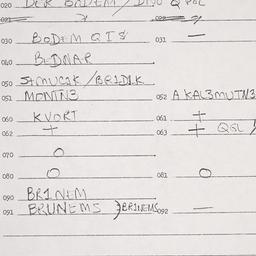 020 DER BADEM / DINO Q PGL
021 ? 022 ?
030 BODEM QTS 031 —
040 BEDNAR
050 STMUCAK / BRIDLK
051 MONTN3 052 AKAL3MUTN3
060 KVORT 061 +
062 + 063 + QGL
070 O
080 O 081 O
090 BR1NEM
091 BRUNEMS }BR1NEMS 092 —